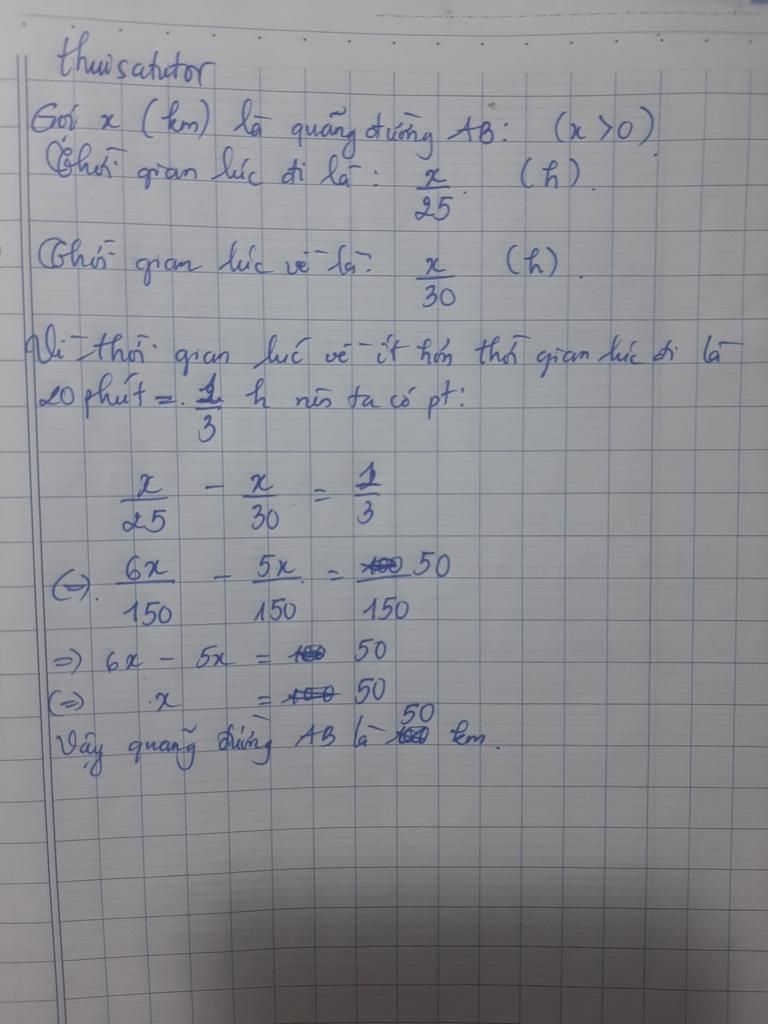 thuisatutor
Gọi x (km) là quãng đường AB: (x > 0)
Thời gian lúc đi là: x/25 (h).
Thời gian lúc về là: x/30 (h).
Vì thời gian lúc về ít hơn thời gian lúc đi là
20 phút = 1/3 h nên ta có pt:
x/25 - x/30 = 1/3
(=) 6x/150 - 5x/150 = 50/150
=) 6x - 5x = 50
(=) x = 50
Vậy quãng đường AB là 50 km.